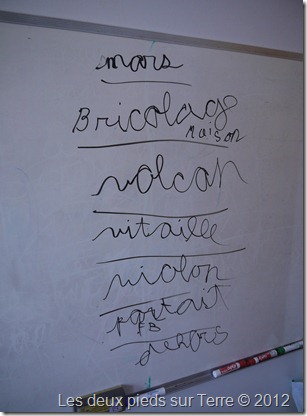 mars
Bricolage
Maison
volcan
vitaille
violon
portait
FB
dehors
Les deux pieds sur Terre © 2012